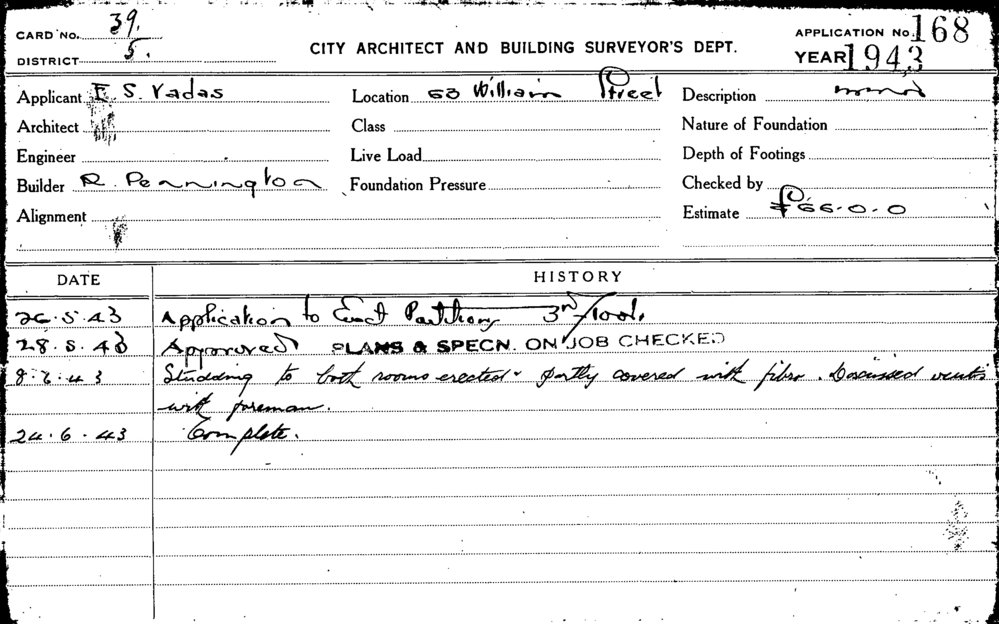 CARD No. 39.
DISTRICT 5.
CITY ARCHITECT AND BUILDING SURVEYOR'S DEPT.
APPLICATION No. 168
YEAR 1943
Applicant E. S. Vadas
Location 63 William Street
Description minor
Architect
Class
Nature of Foundation
Engineer
Live Load
Depth of Footings
Builder R. Pennington
Foundation Pressure
Checked by
Alignment
Estimate £66.0.0
DATE
HISTORY
26.5.43 Application to Erect Partitions 3rd floor.
28.5.43 Approved PLANS & SPECN. ON JOB CHECKED
8.6.43 Studding to both rooms erected & partly covered with fibro. Discussed vents
with foreman.
24.6.43 Complete.